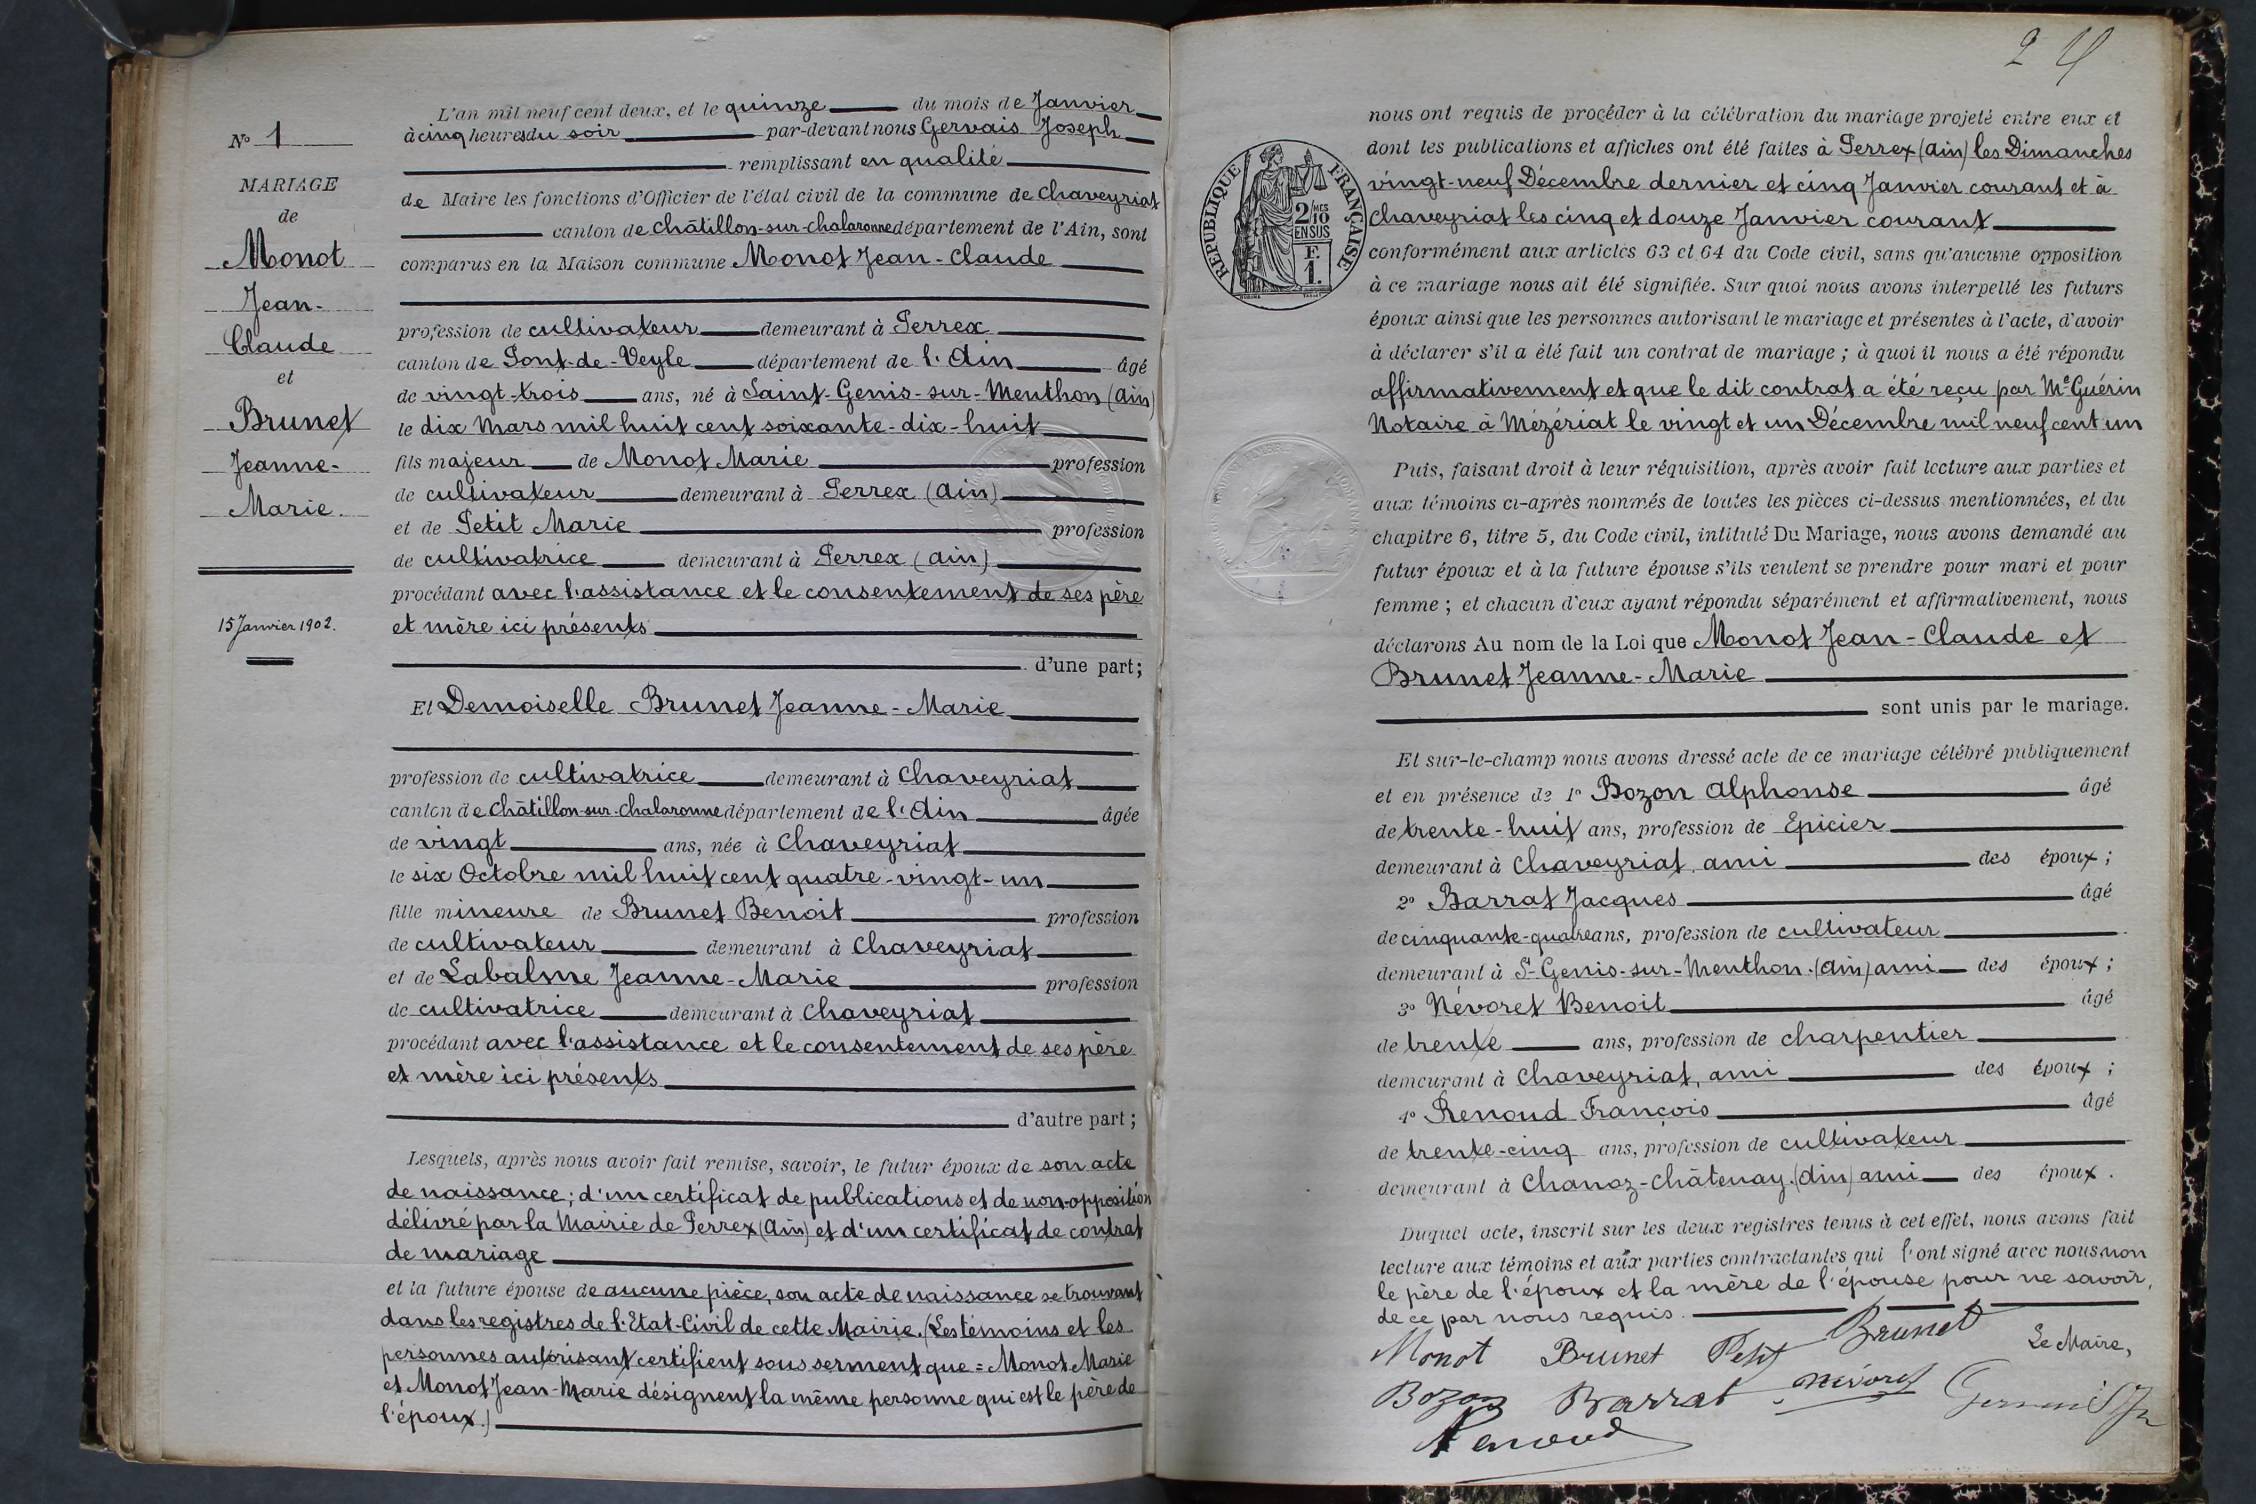 N° 1
MARIAGE
de
Monot
Jean-
Claude
et
Brunet
Jeanne-
Marie.
15 Janvier 1902.
L'an mil neuf cent deux, et le quinze du mois de Janvier
à cinq heures du soir par-devant nous Gervais Joseph
remplissant en qualité
de Maire les fonctions d'Officier de l'état civil de la commune de Chaveyriat
canton de Châtillon-sur-Chalaronne département de l'Ain, sont
comparus en la Maison commune Monot Jean-Claude
profession de cultivateur demeurant à Perrex
canton de Pont-de-Veyle département de l'Ain âgé
de vingt-trois ans, né à Saint-Genis-sur-Menthon (Ain)
le dix Mars mil huit cent soixante-dix-huit
fils majeur de Monot Marie profession
de cultivateur demeurant à Perrex (Ain)
et de Petit Marie profession
de cultivatrice demeurant à Perrex (Ain)
procédant avec l'assistance et le consentement de ses père
et mère ici présents
d'une part;
Et Demoiselle Brunet Jeanne-Marie
profession de cultivatrice demeurant à Chaveyriat
canton de Châtillon-sur-Chalaronne département de l'Ain âgée
de vingt ans, née à Chaveyriat
le six Octobre mil huit cent quatre-vingt-un
fille mineure de Brunet Benoit profession
de cultivateur demeurant à Chaveyriat
et de Labalme Jeanne-Marie profession
de cultivatrice demeurant à Chaveyriat
procédant avec l'assistance et le consentement de ses père
et mère ici présents
d'autre part;
Lesquels, après nous avoir fait remise, savoir, le futur époux de son acte
de naissance; d'un certificat de publications et de non-opposition
délivré par la Mairie de Perrex (Ain) et d'un certificat de contrat
de mariage
et la future épouse de aucune pièce, son acte de naissance se trouvant
dans les registres de l'Etat-Civil de cette Mairie. (Les témoins et les
personnes autorisant certifient sous serment que = Monot Marie
et Monot Jean-Marie désignent la même personne qui est le père de
l'époux.)
2
RÉPUBLIQUE FRANÇAISE
2/10 MES
EN SUS
F.
1.
nous ont requis de procéder à la célébration du mariage projeté entre eux et
dont les publications et affiches ont été faites à Perrex (Ain) les Dimanches
vingt-neuf Décembre dernier et cinq Janvier courant et à
Chaveyriat les cinq et douze Janvier courant
conformément aux articles 63 et 64 du Code civil, sans qu'aucune opposition
à ce mariage nous ait été signifiée. Sur quoi nous avons interpellé les futurs
époux ainsi que les personnes autorisant le mariage et présentes à l'acte, d'avoir
à déclarer s'il a été fait un contrat de mariage ; à quoi il nous a été répondu
affirmativement et que le dit contrat a été reçu par Me Guérin
Notaire à Mézériat le vingt et un Décembre mil neuf cent un
Puis, faisant droit à leur réquisition, après avoir fait lecture aux parties et
aux témoins ci-après nommés de toutes les pièces ci-dessus mentionnées, et du
chapitre 6, titre 5, du Code civil, intitulé Du Mariage, nous avons demandé au
futur époux et à la future épouse s'ils veulent se prendre pour mari et pour
femme ; et chacun d'eux ayant répondu séparément et affirmativement, nous
déclarons Au nom de la Loi que Monot Jean-Claude et
Brunet Jeanne-Marie
sont unis par le mariage.
Et sur-le-champ nous avons dressé acte de ce mariage célébré publiquement
et en présence de 1° Bozon Alphonse âgé
de trente-huit ans, profession de Epicier
demeurant à Chaveyriat, ami des époux ;
2° Barrat Jacques âgé
de cinquante-quatre ans, profession de cultivateur
demeurant à St-Genis-sur-Menthon (Ain) ami des époux ;
3° Névoret Benoit âgé
de trente ans, profession de charpentier
demeurant à Chaveyriat, ami des époux ;
4° Renoud François âgé
de trente-cinq ans, profession de cultivateur
demeurant à Chanoz-Châtenay (Ain) ami des époux.
Duquel acte, inscrit sur les deux registres tenus à cet effet, nous avons fait
lecture aux témoins et aux parties contractantes qui l'ont signé avec nous non
le père de l'époux et la mère de l'épouse pour ne savoir,
de ce par nous requis.
Monot Brunet Petit Brunet Le Maire,
Bozon Barrat Névoret
Renoud